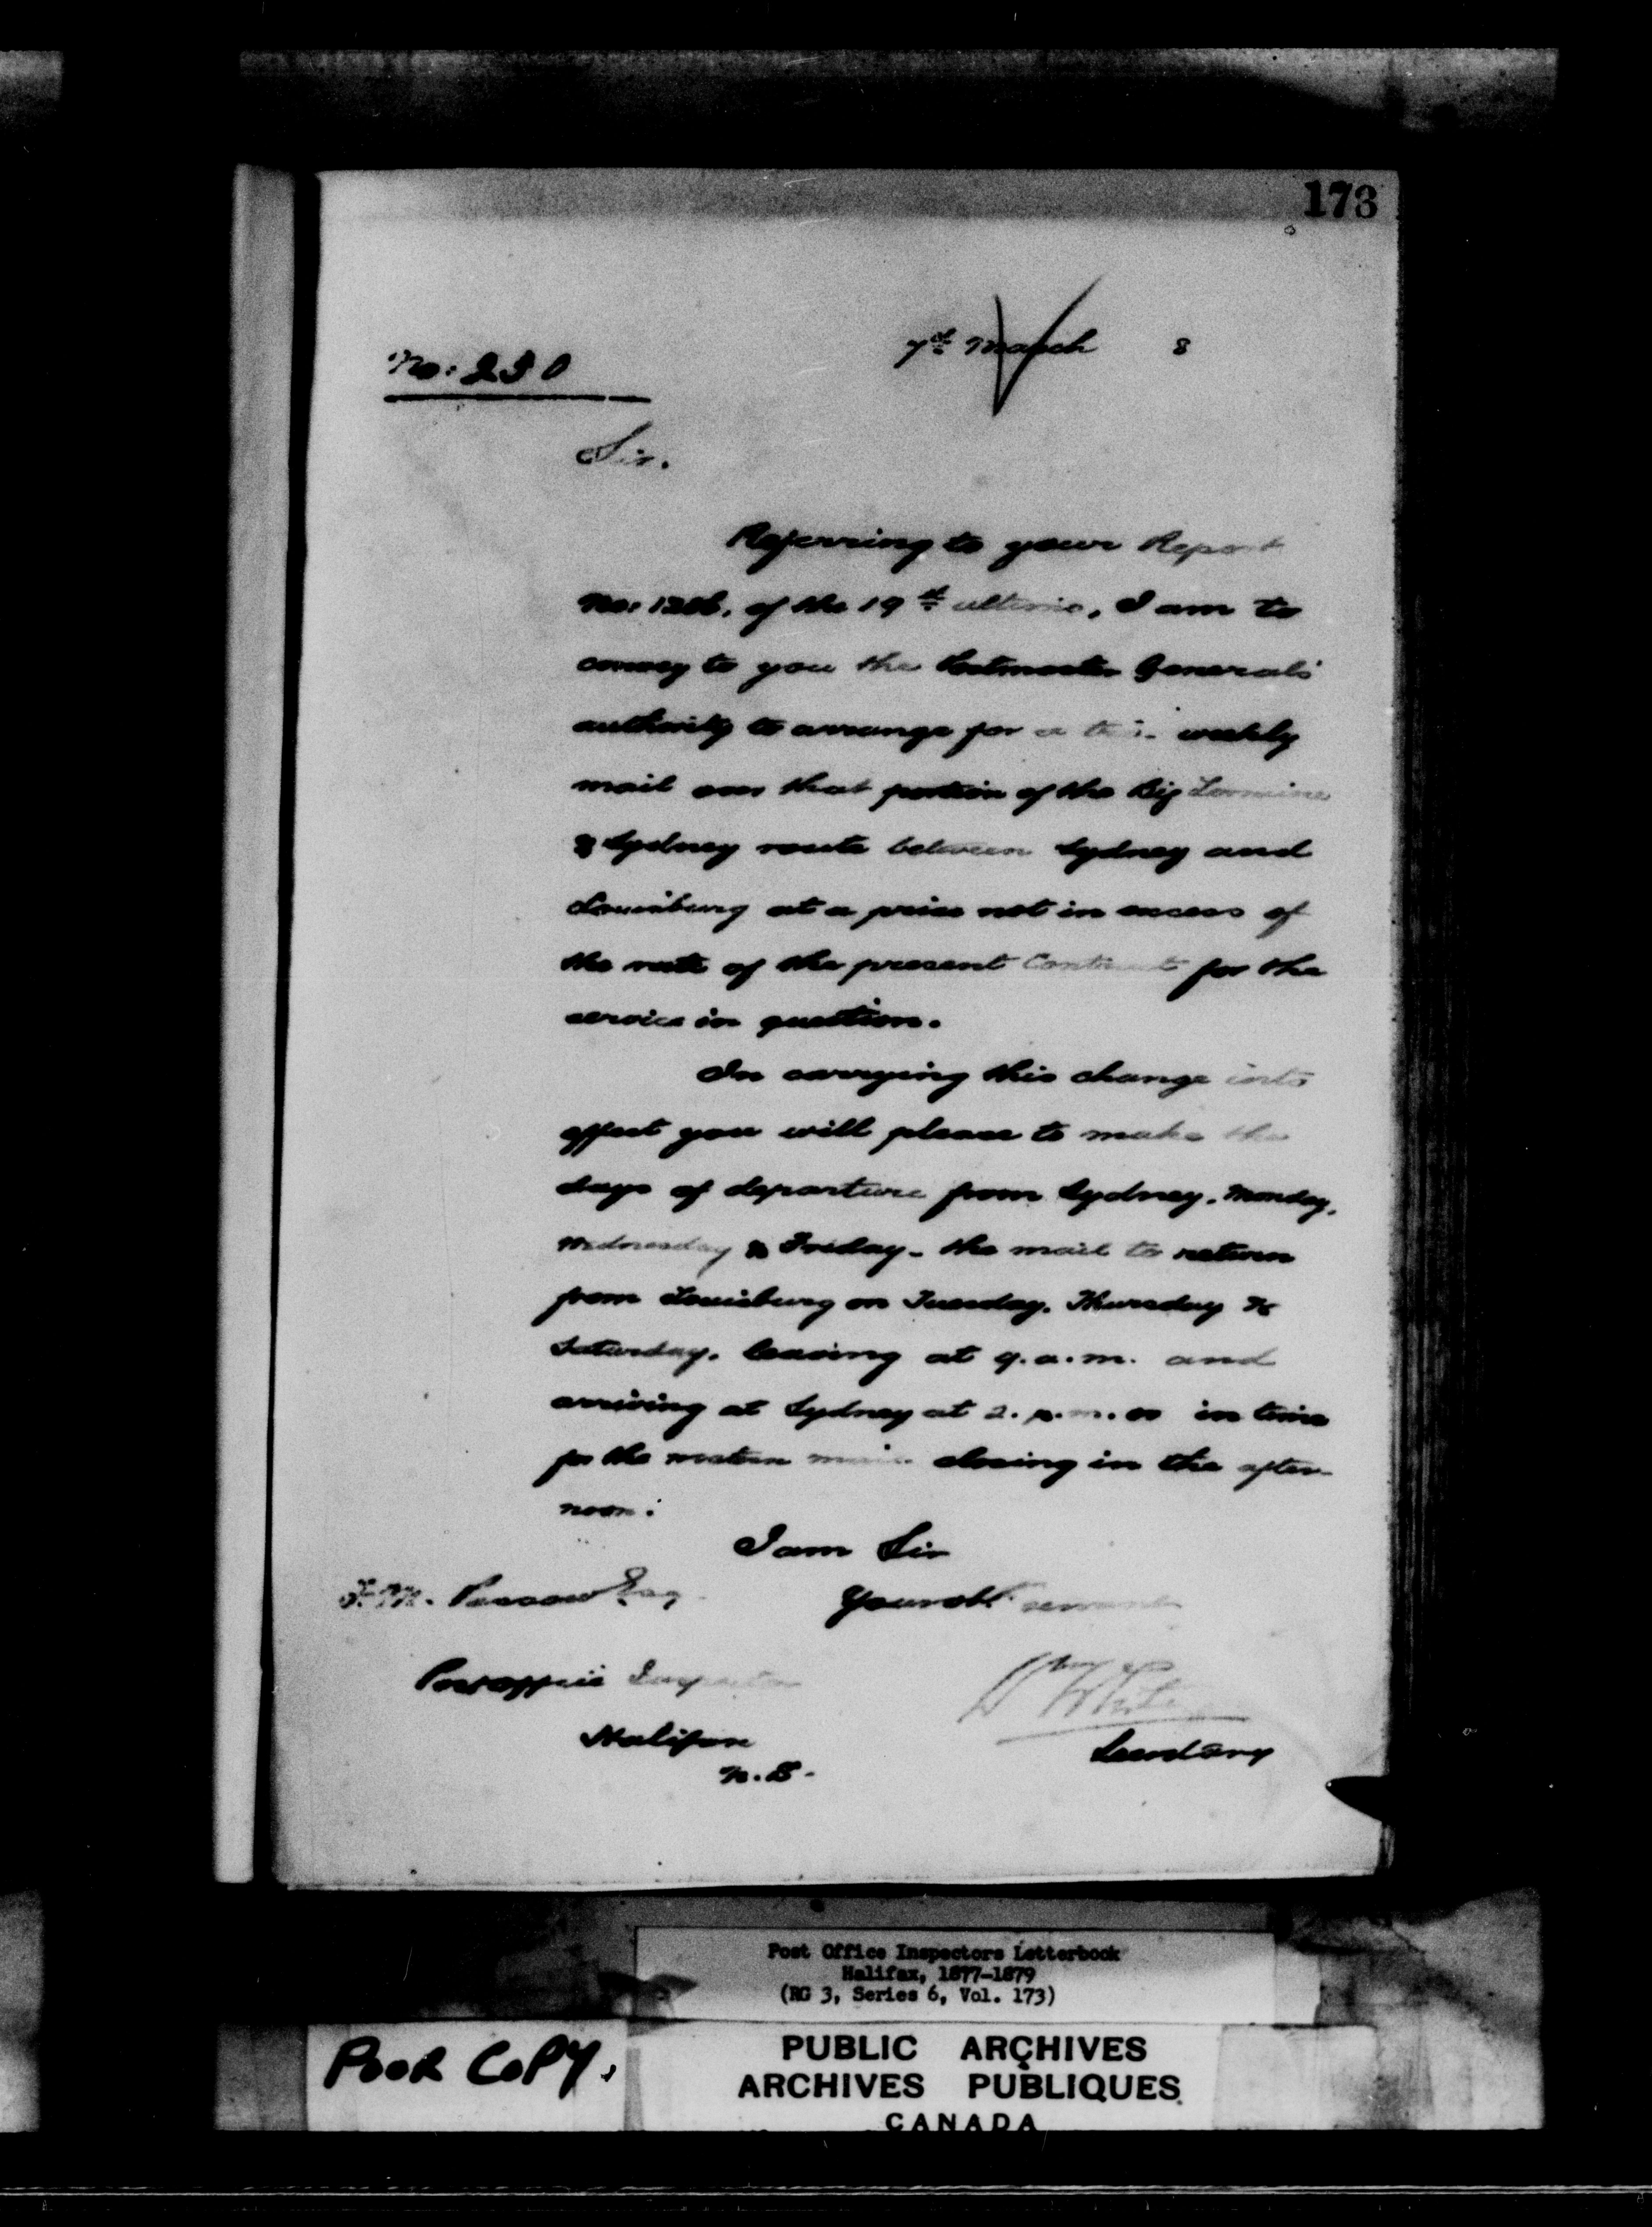 173
7th March 8
No: 230
Sir.
Referring to your Report
No: 1286, of the 19th ultimo, I am to
convey to you the Postmaster General's
authority to arrange for a tri-weekly
mail over that portion of the Big Lorraine
& Sydney route between Sydney and
Louisburg at a price not in excess of
the rate of the present Contract for the
service in question.
In carrying this change into
effect you will please to make the
days of departure from Sydney, Monday,
Wednesday & Friday - the mail to return
from Louisburg on Tuesday, Thursday &
Saturday, leaving at 9. a.m. and
arriving at Sydney at 2. p.m. or in time
for the western mail closing in the after-
noon.
I am Sir
F. M. Passow Esq
Your obt servant
Post Office Inspector
White
Halifax
Secretary
N.S.
Post Office Inspectors Letterbook
Halifax, 1877-1879
(RG 3, Series 6, Vol. 173)
POOR COPY.
PUBLIC ARCHIVES
ARCHIVES PUBLIQUES
CANADA